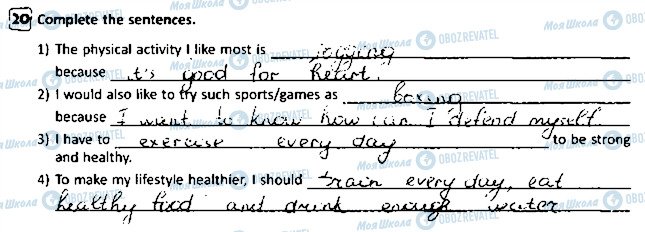 20 Complete the sentences.
1) The physical activity I like most is jogging
because it's good for heart.
2) I would also like to try such sports/games as boxing
because I want to know how can I defend myself.
3) I have to exercise every day to be strong
and healthy.
4) To make my lifestyle healthier, I should train every day, eat
healthy food and drink enough water